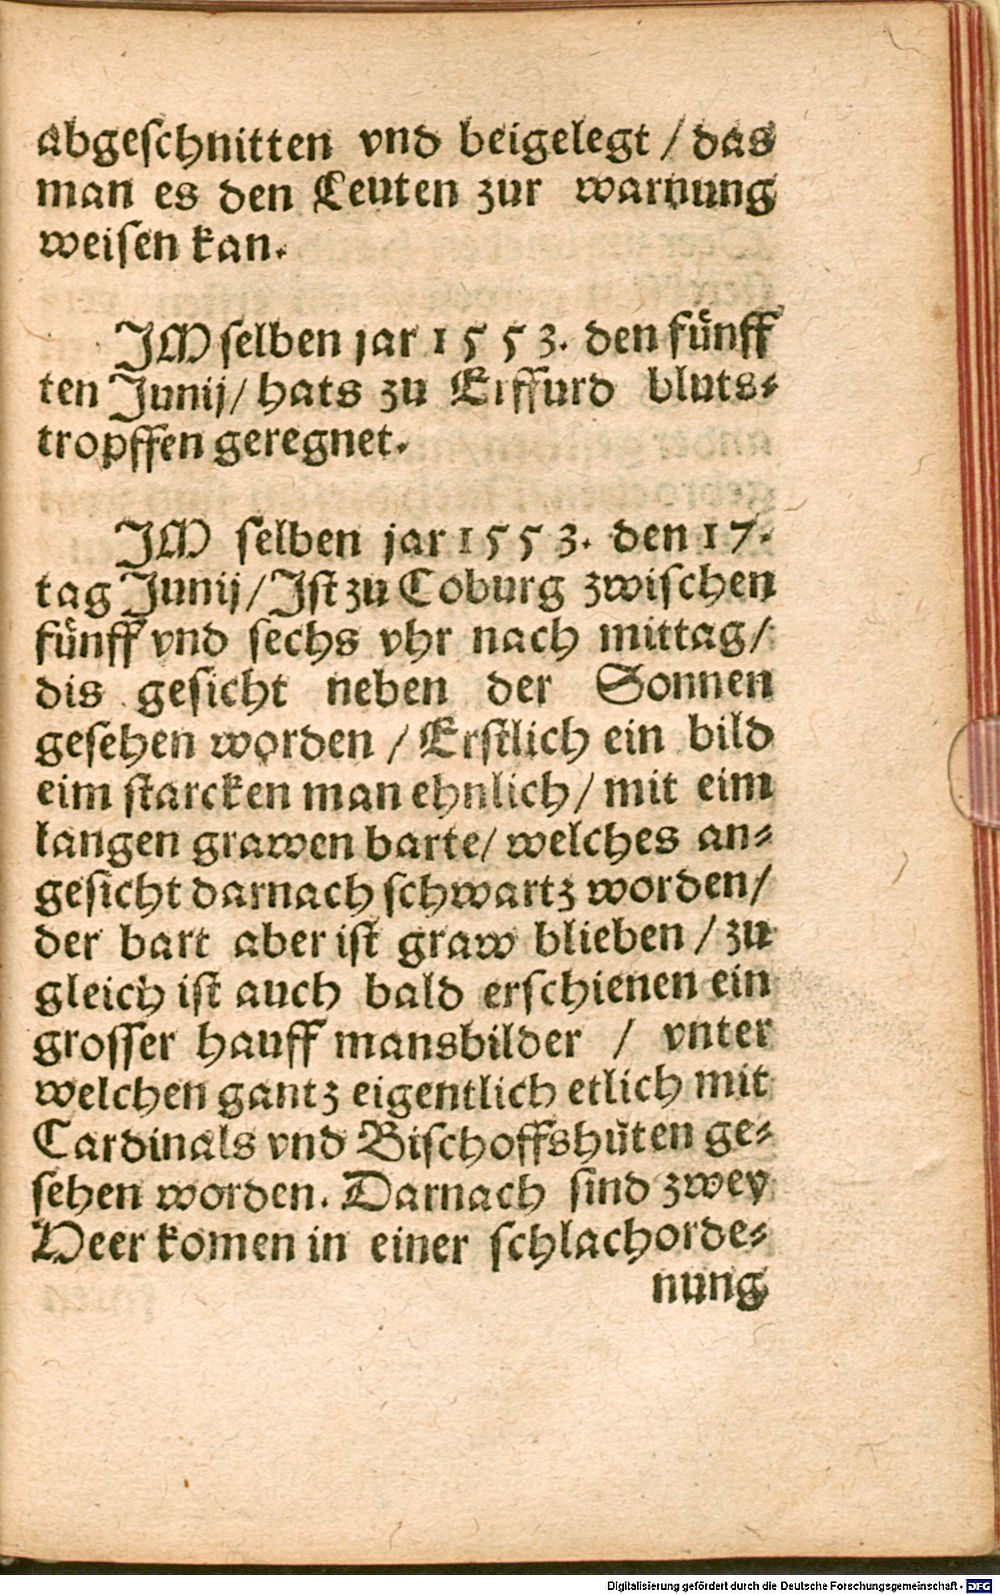 abgeschnitten vnd beigelegt / das
man es den Leuten zur warnung
weisen kan.
JM selben jar 1553. den fünff
ten Junij / hats zu Erffurd bluts⸗
tropffen geregnet.
JM selben jar 1553. den 17.
tag Junij / Jst zu Coburg zwischen
fünff vnd sechs vhr nach mittag /
dis gesicht neben der Sonnen
gesehen worden / Erstlich ein bild
eim starcken man ehnlich / mit eim
langen grawen barte / welches an⸗
gesicht darnach schwartz worden /
der bart aber ist graw blieben / zu
gleich ist auch bald erschienen ein
grosser hauff mansbilder / vnter
welchen gantz eigentlich etlich mit
Cardinals vnd Bischoffshüten ge⸗
sehen worden. Darnach sind zwey
Heer komen in einer schlachorde⸗
nung
Digitalisierung gefördert durch die Deutsche Forschungsgemeinschaft - DFG